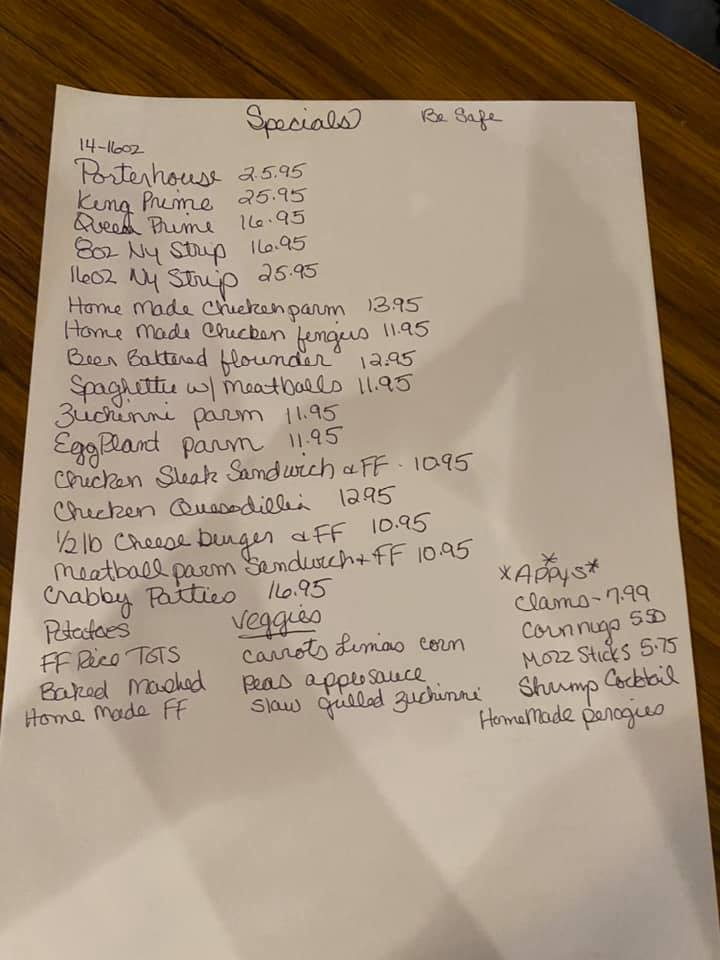 Specials Be Safe
14-16oz
Porterhouse 25.95
King Prime 25.95
Queen Prime 16.95
8oz Ny Strip 16.95
16oz Ny Strip 25.95
Home Made Chicken parm 13.95
Home Made Chicken fengus 11.95
Beer Battered flounder 12.95
Spaghettie w/ meatballs 11.95
Zuchinni parm 11.95
EggPlant parm 11.95
Chicken Steak Sandwich & FF - 10.95
Chicken Quesadillia 12.95
1/2 lb Cheese burger & FF 10.95
Meatball parm Sandwich + FF 10.95
Crabby Patties 16.95
Potatoes
FF Rice TOTS
Baked Mashed
Home Made FF
Veggies
carrots Limas corn
peas applesauce
slaw grilled zuchinni
*APPys*
Clams - 7.99
Corn nugs 5.50
Mozz Sticks 5.75
Shrimp Cocktail
HomeMade perogies